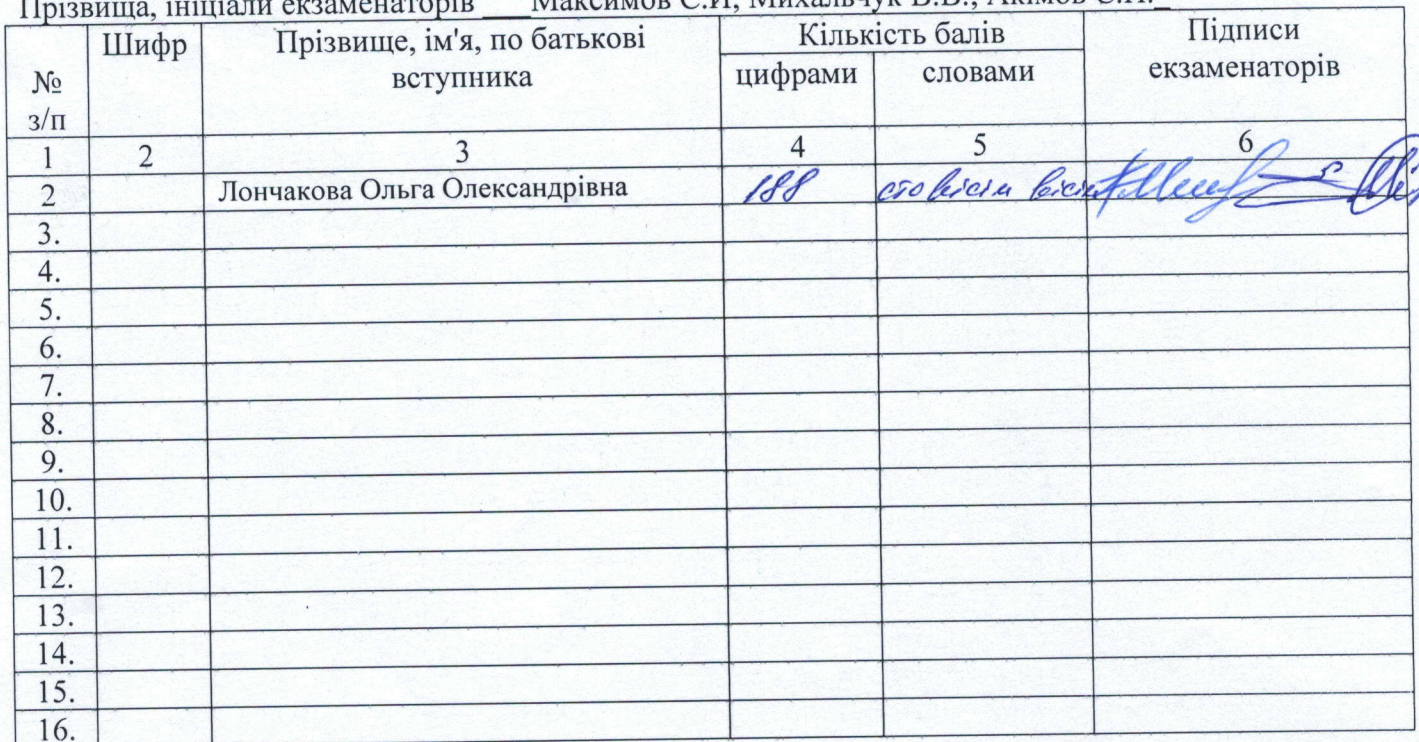 Прізвища, ініціали екзаменаторів ___Максимов С.Й, Михальчук В.В., Акімов С.Л._
№ з/п Шифр Прізвище, ім'я, по батькові вступника Кількість балів цифрами словами Підписи екзаменаторів
1 2 3 4 5 6
2 Лончакова Ольга Олександрівна 188 сто вісім вісім
3.
4.
5.
6.
7.
8.
9.
10.
11.
12.
13.
14.
15.
16.